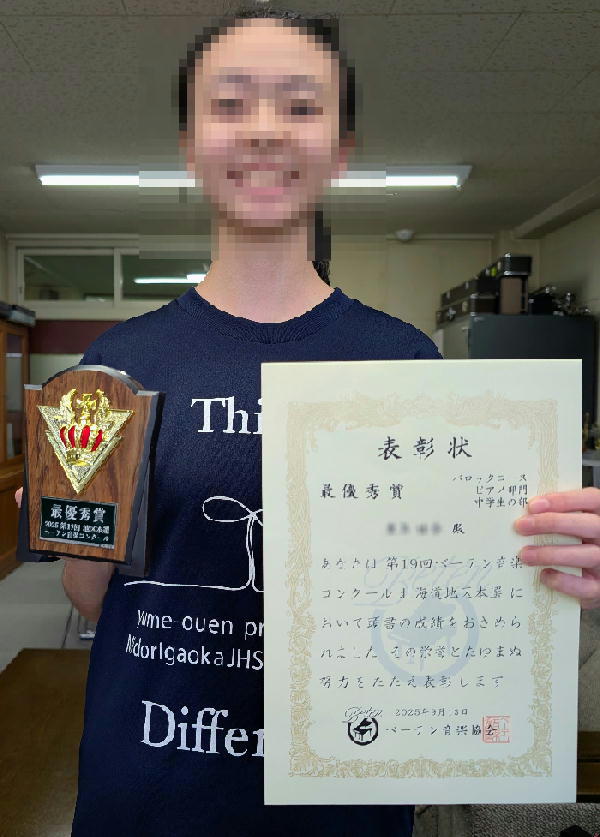 Thi
最優秀賞
Yume-ouen pr
MidorigaokaJHS
Differ
表彰状
バロックコース
最優秀賞
ピアノ部門
中学生の部
殿
あなたは第19回ベーテン音楽
コンクール
海道地区本選に
おいて頭書の成績をおさめら
れました その栄誉とたゆまぬ
努力をたたえ表彰します
ベーテン音楽協会